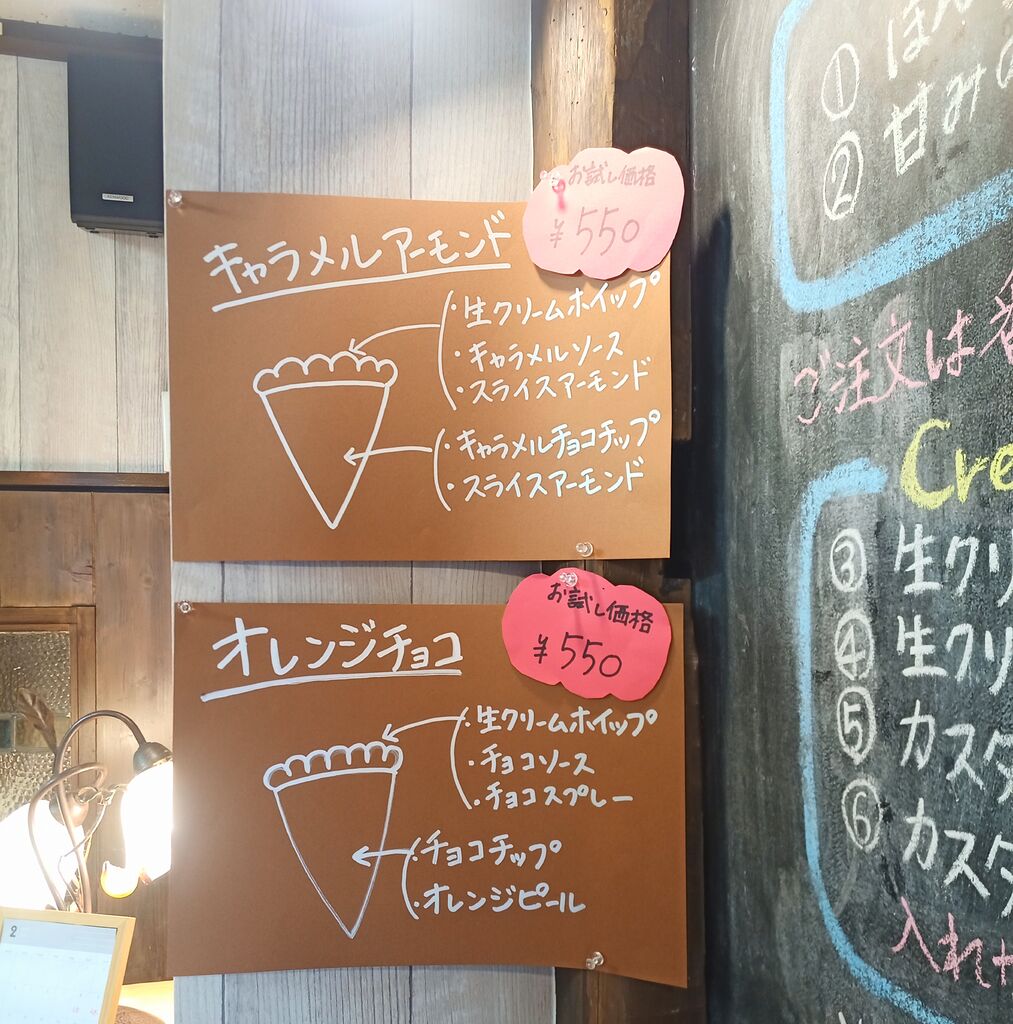 KENWOOD
キャラメルアーモンド
お試し価格
¥550
・生クリームホイップ
・キャラメルソース
・スライスアーモンド
・キャラメルチョコチップ
・スライスアーモンド
オレンジチョコ
お試し価格
¥550
・生クリームホイップ
・チョコソース
・チョコスプレー
・チョコチップ
・オレンジピール
2
①
② 甘みの
ご注文は
Cre
③ 生クリ
④ 生クリ
⑤ カスタ
⑥ カスタ
入れ